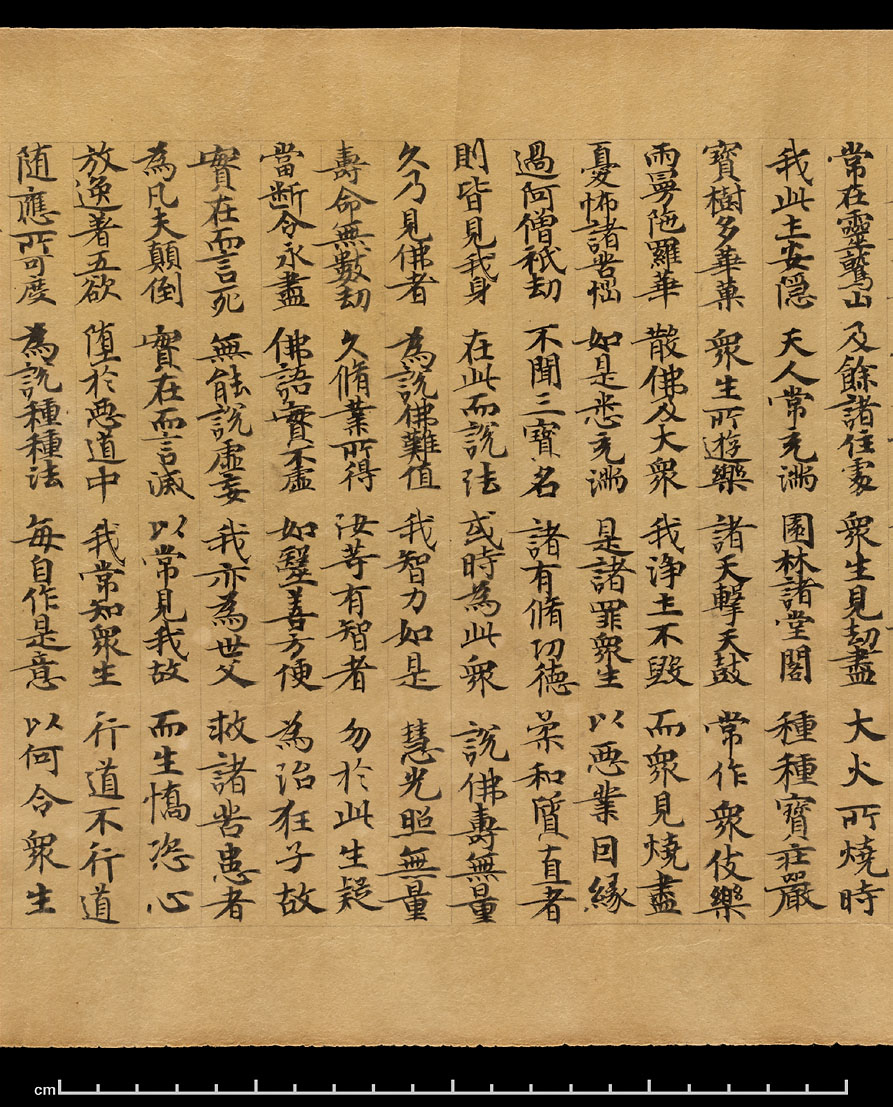 常在靈鷲山 及餘諸住處 衆生見劫盡 大火所燒時
我此土安隱 天人常充滿 園林諸堂閣 種種寶莊嚴
寶樹多華菓 衆生所遊樂 諸天擊天鼓 常作衆伎樂
雨曼陀羅華 散佛及大衆 我淨土不毀 而衆見燒盡
憂怖諸苦惱 如是悉充滿 是諸罪衆生 以惡業因緣
過阿僧祇劫 不聞三寶名 諸有脩功德 柔和質直者
則皆見我身 在此而說法 或時為此衆 說佛壽無量
久乃見佛者 為說佛難值 我智力如是 慧光照無量
壽命無數劫 久脩業所得 汝等有智者 勿於此生疑
當断令永盡 佛語實不虛 如毉善方便 為治狂子故
實在而言死 無能說虛妄 我亦為世父 救諸苦患者
為凡夫顛倒 實在而言滅 以常見我故 而生憍恣心
放逸著五欲 墮於惡道中 我常知衆生 行道不行道
随應所可度 為說種種法 每自作是意 以何令衆生
cm